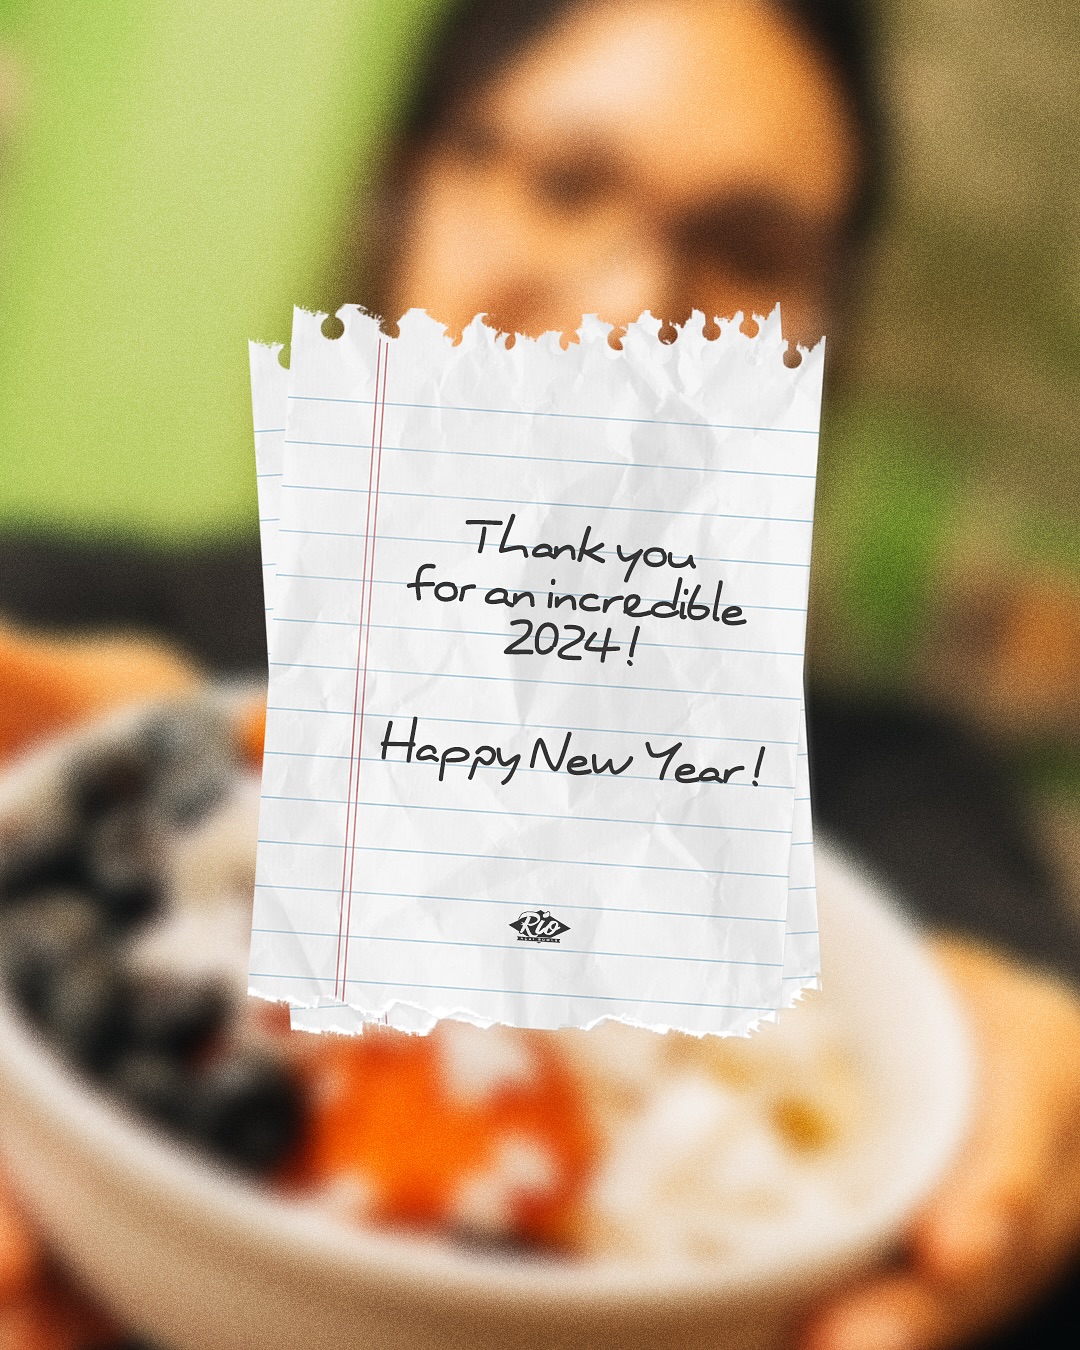 Thank you
for an incredible
2024!
Happy New Year!
Rio